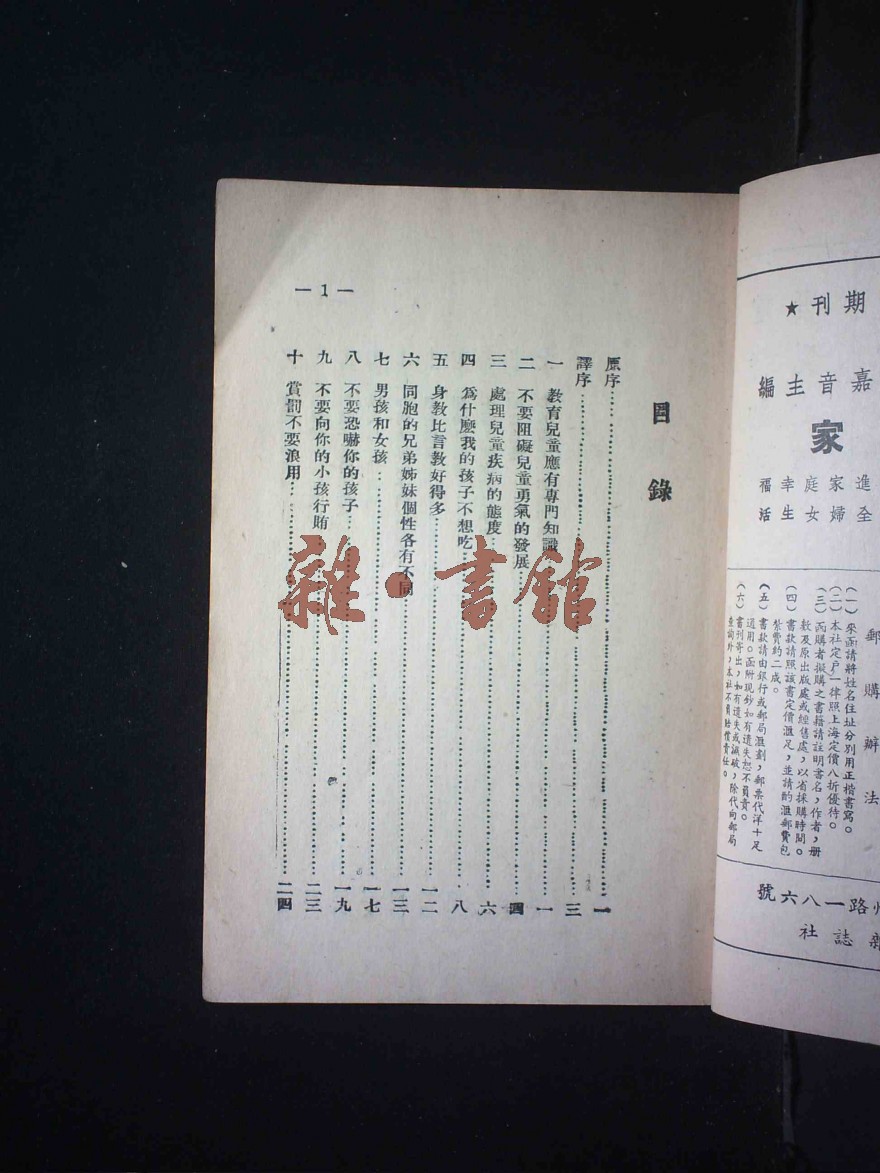 期刊★
嘉音主編
家
進家庭幸福
全婦女生活
郵購辦法
（一）來函請將姓名住址分別用正楷書寫。
（二）本社定戶一律照上海定價八折優待。
（三）函購者擬購之書籍請註明書名，作者，册
數及原出版處或經售處，以省採購時間。
（四）書款請照該書定價滙足，並請酌滙郵費包
紮費約二成。
（五）書款請由銀行或郵局滙劃，郵票代洋十足
通用。函附現鈔如有遺失恕不負責。
（六）書刊寄出，如有遺失或減破，除代向郵局
查詢外，本社不負賠償責任。
州路一八六號
雜誌社
目錄
原序……一
譯序……三
一 教育兒童應有專門知識……一
二 不要阻礙兒童勇氣的發展……四
三 處理兒童疾病的態度……六
四 爲什麼我的孩子不想吃……八
五 身教比言教好得多……一二
六 同胞的兄弟姊妹個性各有不同……一三
七 男孩和女孩……一七
八 不要恐嚇你的孩子……一九
九 不要向你的小孩行賄……二三
十 賞罰不要浪用……二四
—1—
雜·書館